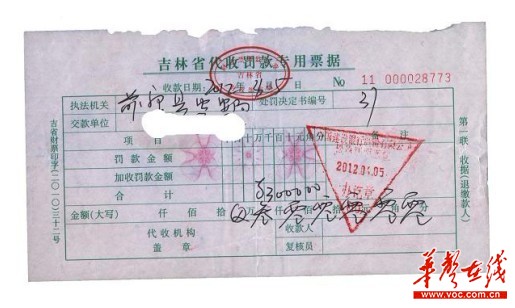 吉林省代收罚款专用票据
吉林省
收款日期: 2012年4月5日 No 11 000028773
执法机关 处罚决定书编号 37
交款单位
项目 十万千百十元角分 备注
罚款金额
加收罚款金额
合计 ¥3000000
金额(大写) 仟佰拾万仟佰拾元角分
代收机构 收款人
盖章 复核员
2012.04.05
吉省财票印字(二〇一〇)三十二号
第一联 收据(退缴款人)
华声在线
www.voc.com.cn